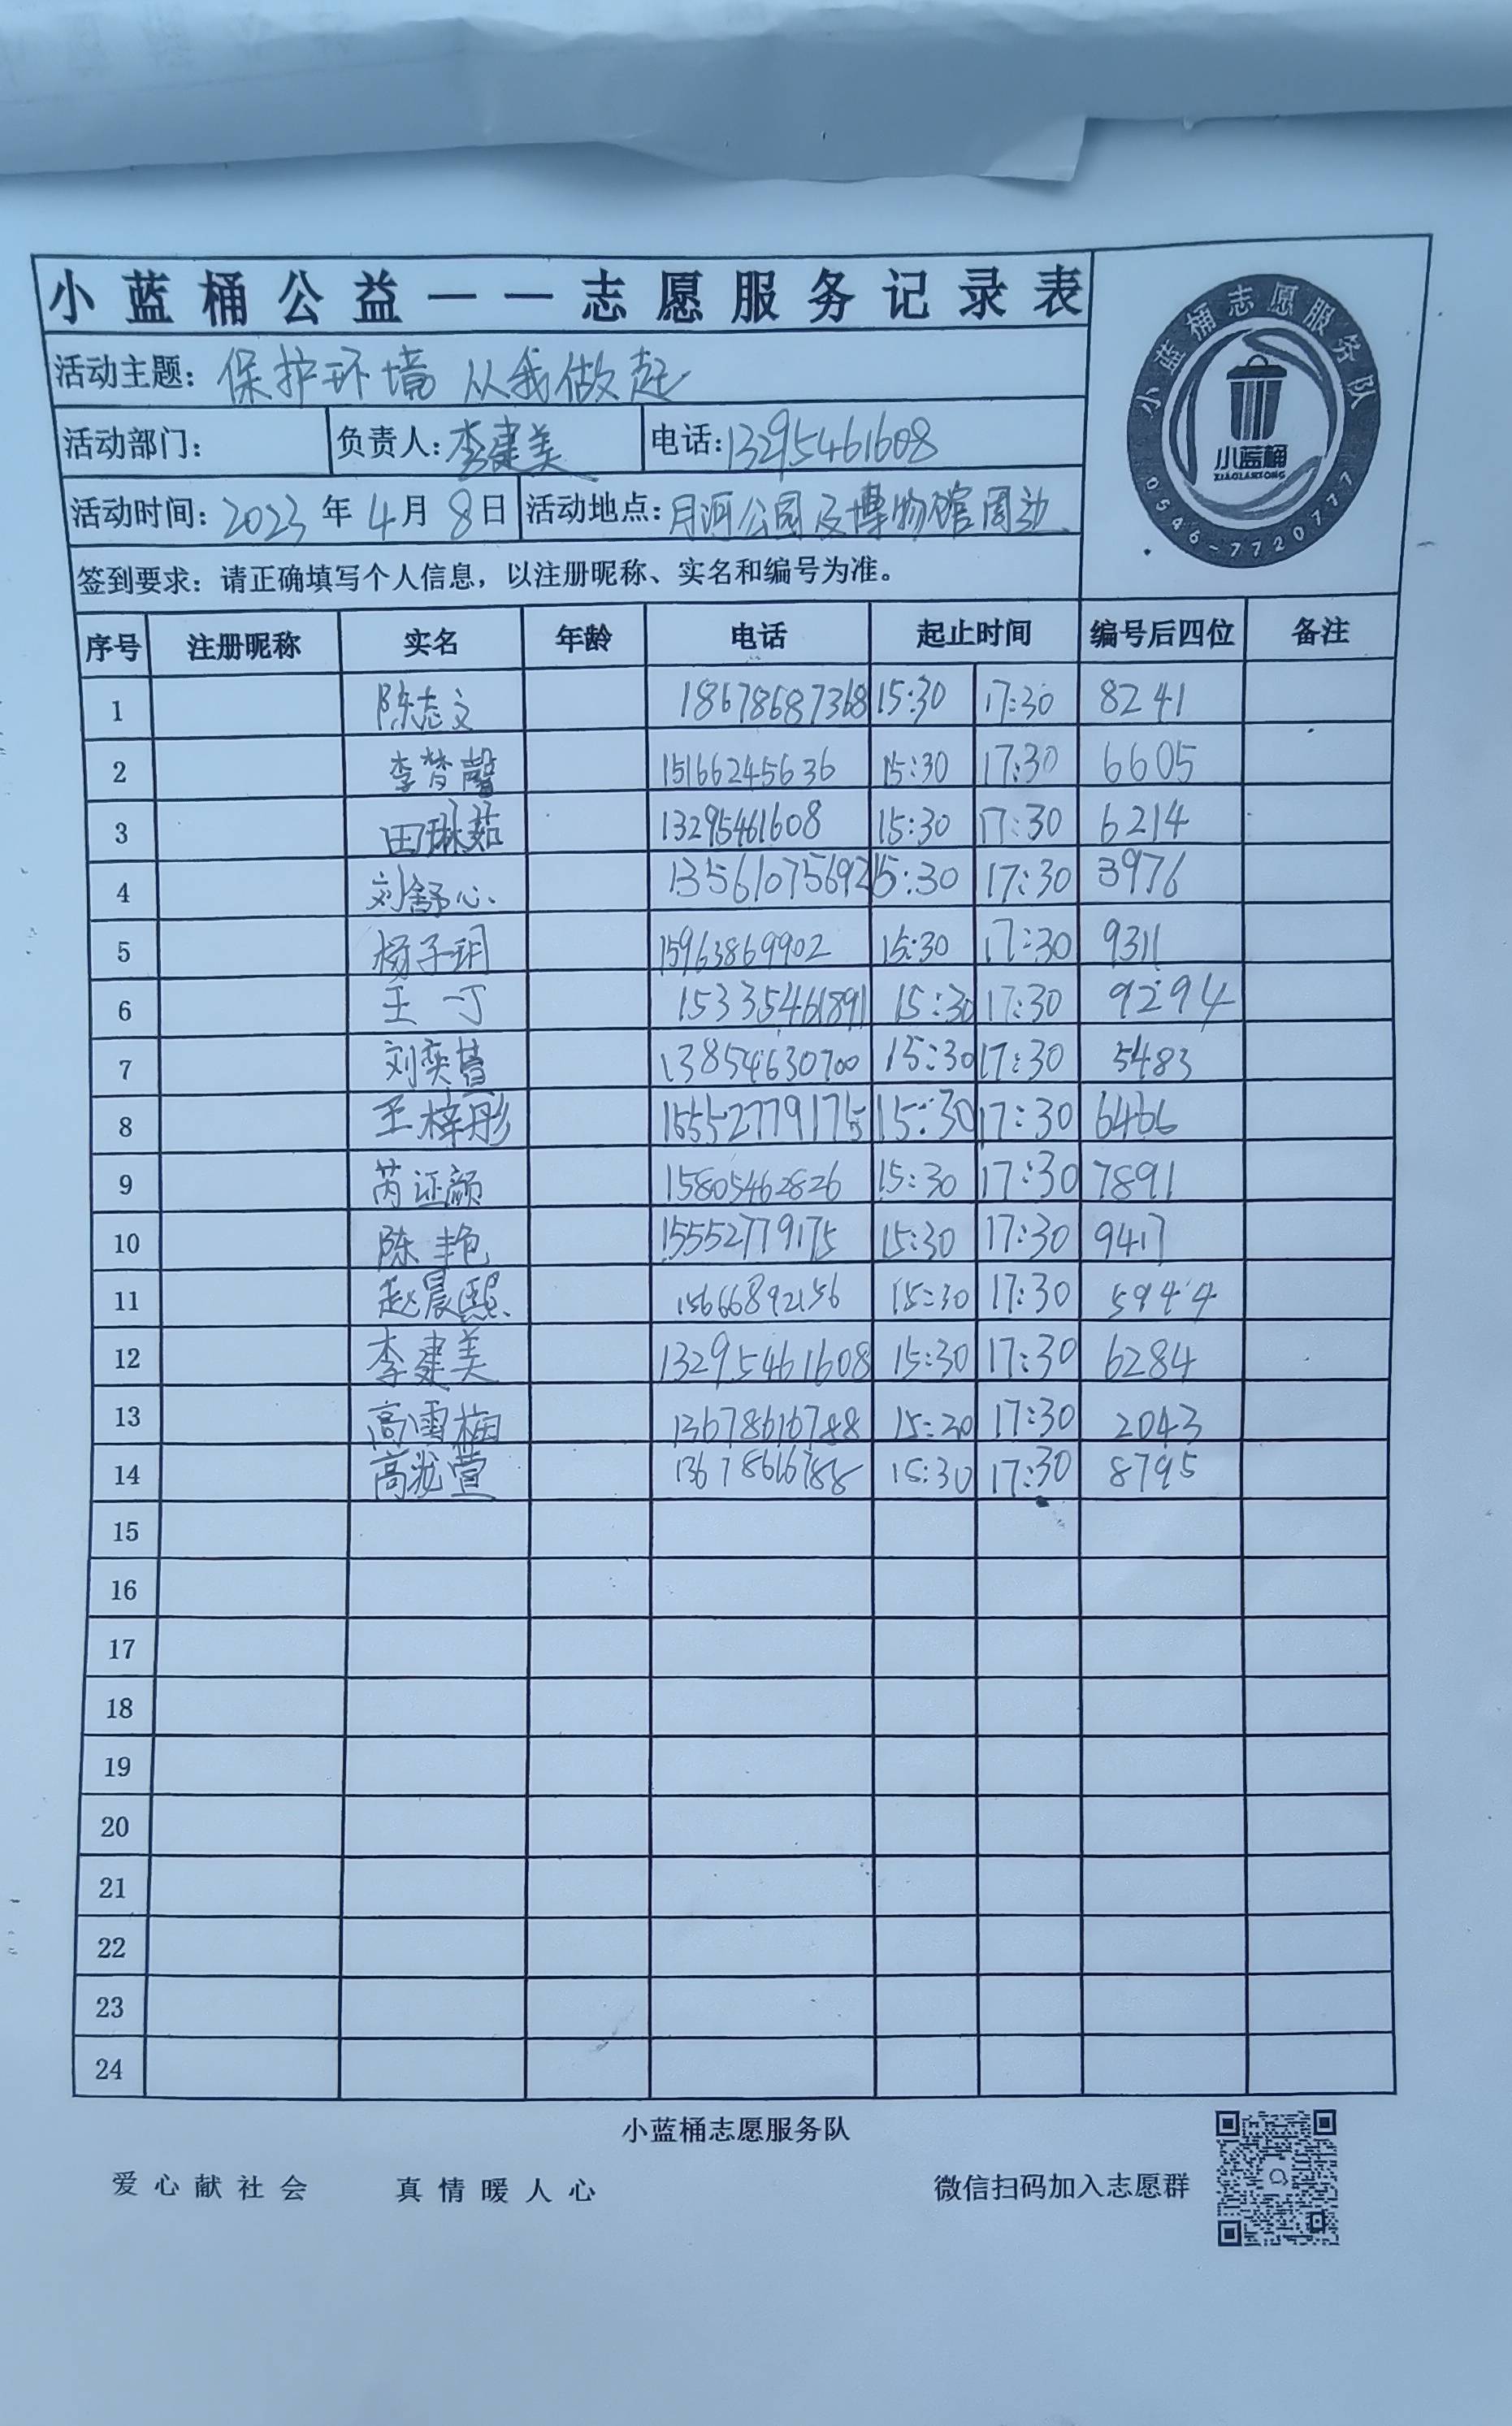 小蓝桶公益——志愿服务记录表
小蓝桶志愿服务队
小蓝桶
XIAOLANTONG
0546-7720777
活动主题：保护环境 从我做起
活动部门： 负责人：李建美 电话：13295461608
活动时间：2023年4月8日 活动地点：月河公园及博物馆周边
签到要求：请正确填写个人信息，以注册昵称、实名和编号为准。
序号 注册昵称 实名 年龄 电话 起止时间 编号后四位 备注
1 陈志文 18678687368 15:30 17:30 8241
2 李梦馨 15166245636 15:30 17:30 6605
3 田琳茹 13295461608 15:30 17:30 6214
4 刘舒心 13561075692 15:30 17:30 3976
5 杨子玥 15963869902 15:30 17:30 9311
6 王一丁 15335461891 15:30 17:30 9294
7 刘奕萱 13854630700 15:30 17:30 5483
8 王梓彤 15552779175 15:30 17:30 6466
9 芮证颜 15805462826 15:30 17:30 7891
10 陈艳 15552779175 15:30 17:30 9417
11 赵晨熙 15666892156 15:30 17:30 5944
12 李建美 13295461608 15:30 17:30 6284
13 高雪梅 13678616788 15:30 17:30 2043
14 高 萱 13678616788 15:30 17:30 8795
15
16
17
18
19
20
21
22
23
24
小蓝桶志愿服务队
爱心献社会 真情暖人心 微信扫码加入志愿群